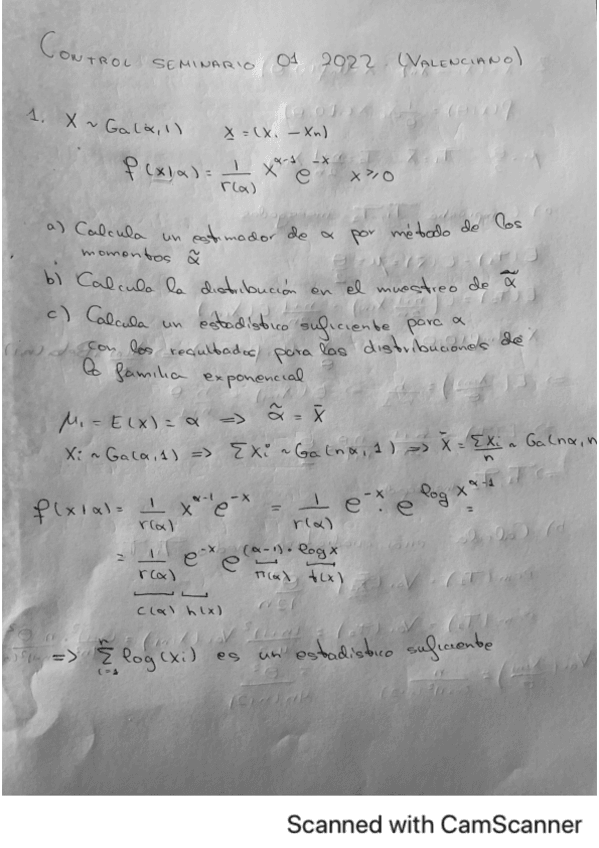 CONTROL SEMINARIO 01 2022 (VALENCIANO)
1. X ~ Ga(α,1) X = (X1 - Xn)
f(x|α) = 1/Γ(α) x^(α-1) e^(-x) x≥0
a) Calcula un estimador de α por método de los
momentos α̃
b) Calcula la distribución en el muestreo de α̃
c) Calcula un estadístico suficiente para α
con los resultados para las distribuciones de
la familia exponencial
μ1 = E(X) = α => α̃ = X̄
Xi ~ Ga(α,1) => ΣXi ~ Ga(nα,1) => X̄ = ΣXi/n ~ Ga(nα,n
f(x|α) = 1/Γ(α) x^(α-1) e^(-x) = 1/Γ(α) e^(-x) · e^(log x^(α-1))
= 1/Γ(α) e^(-x) e^((α-1)·log x)
c(α) h(x) π(α) t(x)
=> Σ_(i=1)^n log(xi) es un estadístico suficiente
Scanned with CamScanner